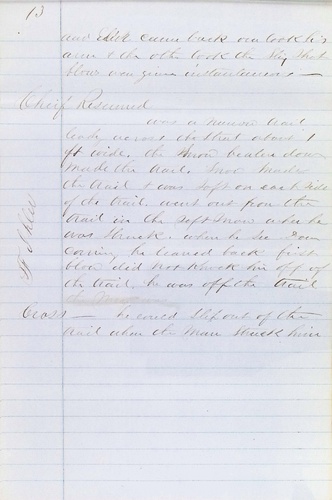 13
and Dick came back one took his
arm & the other took the
blow was given instantaneous —
Chief Resumed
was a narrow trail
leady across that about 1
ft wide, the snow beaten down
made the trail. Snow made
the trail & was soft on each side
of the trail. went out from the
trail in the soft snow when he
was struck. when he see
coming he leaned back first
blow did not knock him off of
the trail, he was off the trail
Cross — he could step out of the
trail when the man struck him